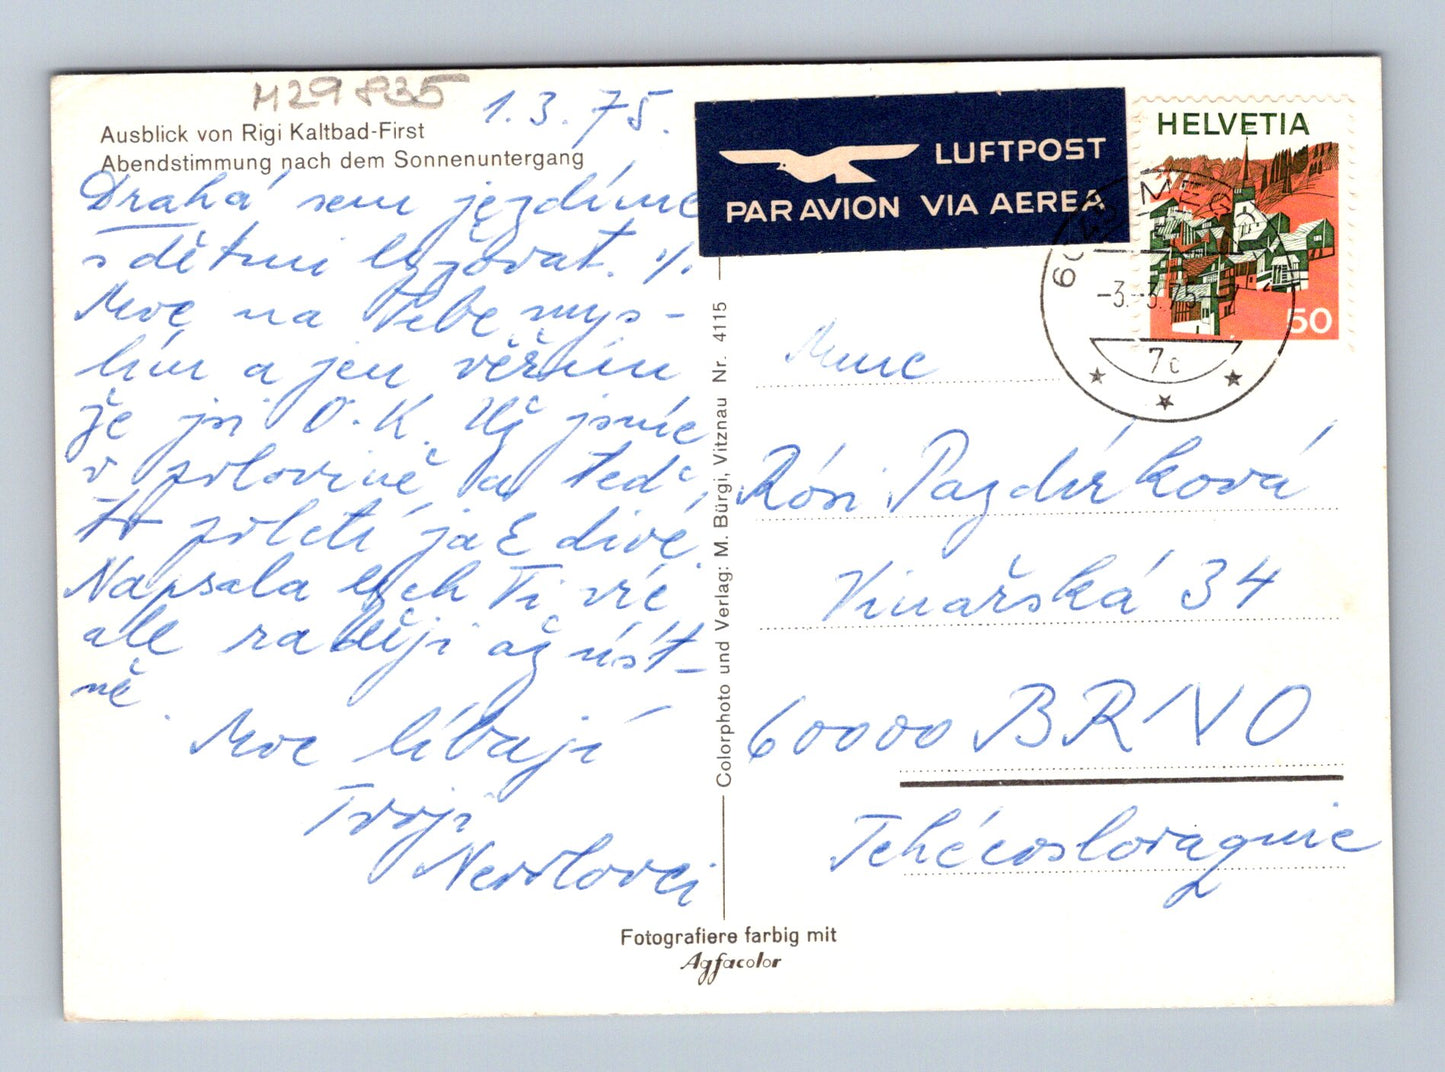 H29835
1.3.75.
Ausblick von Rigi Kaltbad-First
Abendstimmung nach dem Sonnenuntergang
Drahá sem jezdíme
s dětmi lyžovat.
Moc na Tebe mys-
lím a jen věřím
že jsi O.K. Už jsme
v polovině a teď
to poletí jak divé.
Napsala bych Ti víc
ale raději až úst-
ně.
Moc líbají
Tvoji
LUFTPOST
PAR AVION VIA AEREA
HELVETIA
50
-3.-3.75-
7c
Colorphoto und Verlag: M. Bürgi, Vitznau Nr. 4115
Mme
Rósi Pazdírková
Vinařská 34
60000 BRNO
Tchécoslovaquie
Fotografiere farbig mit
Agfacolor